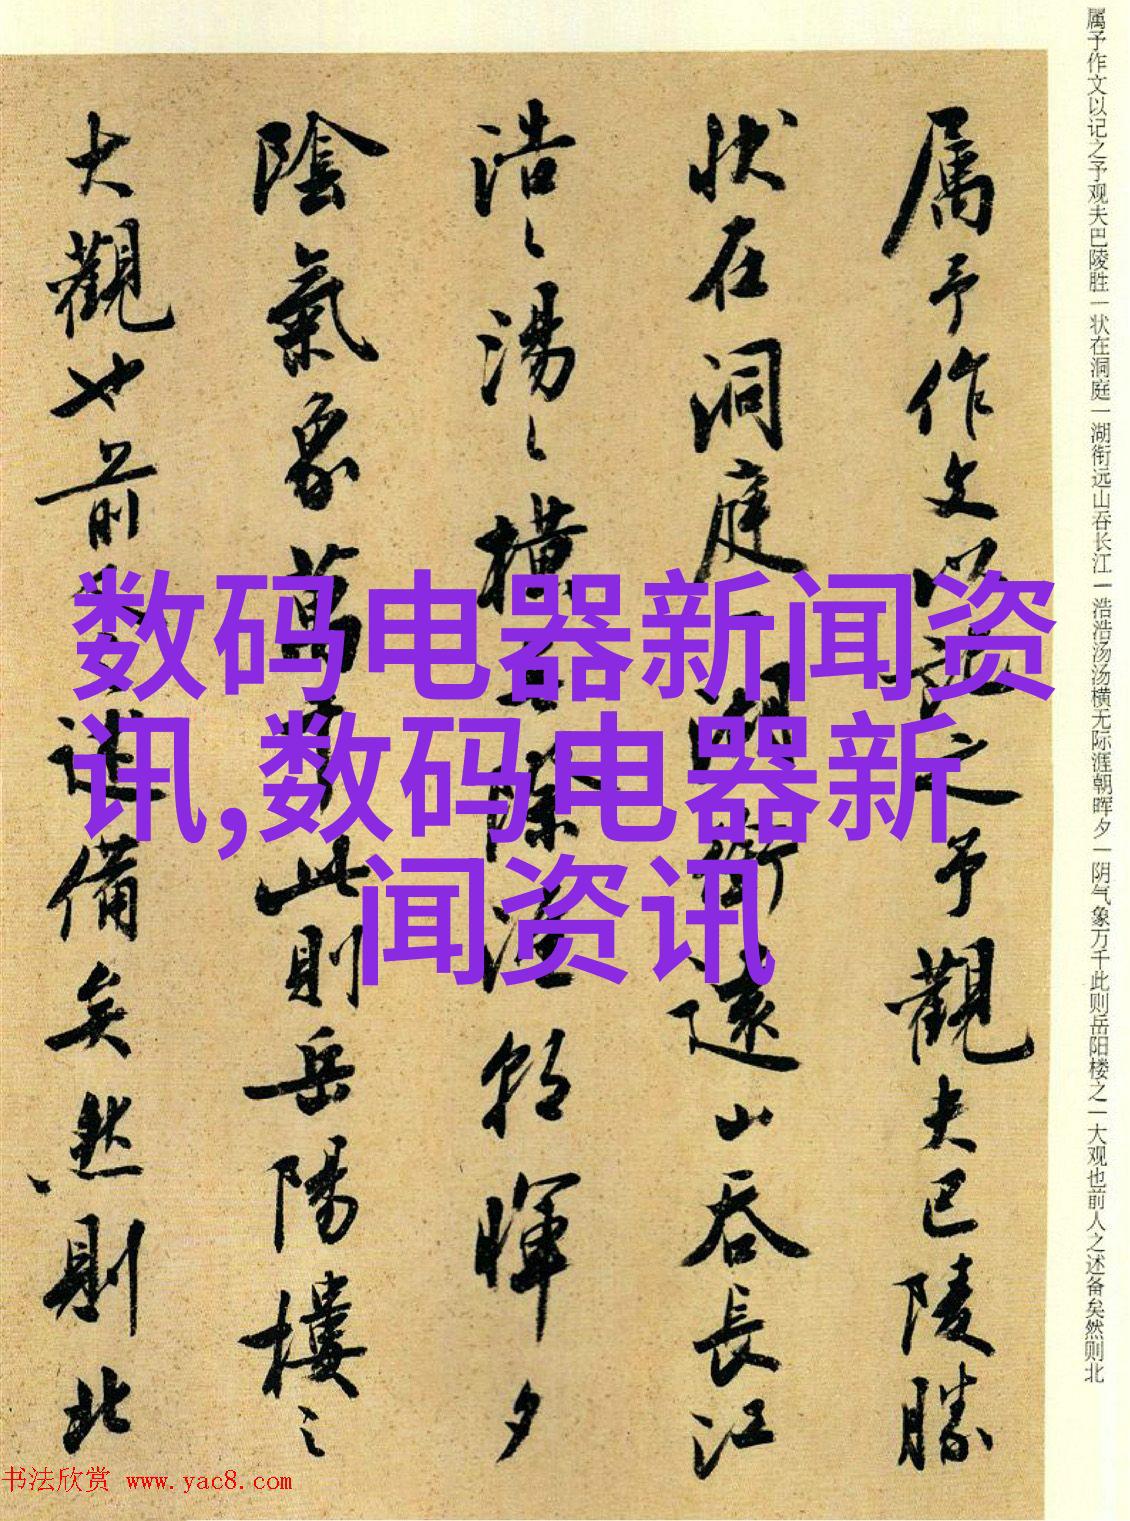 属予作文以记之予观夫巴陵胜一状在洞庭一湖衔远山吞长江一浩浩汤汤横无际涯朝晖夕一阴气象万千此则岳阳楼之一大观也前人之述备矣然则北
属予作文以記之予觀夫巴陵勝
狀在洞庭一湖銜遠山吞長江
浩〻湯〻橫無際涯朝暉夕
陰氣象萬千此則岳陽樓之
大觀也前人之述備矣然則北
数码电器新闻资
讯,数码电器新
闻资讯
书法欣赏 www.yac8.com